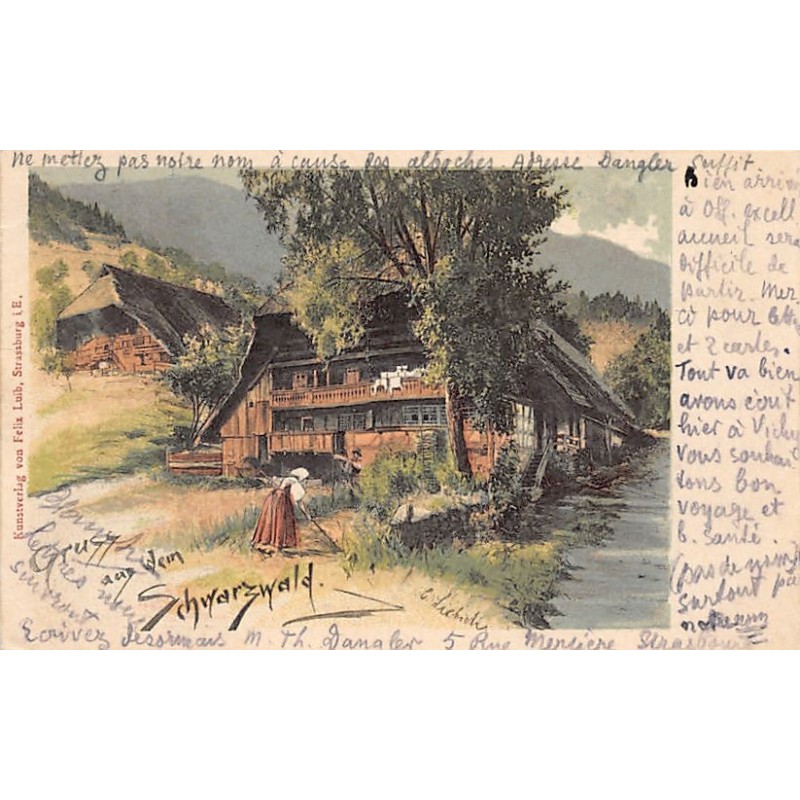 Ne mettez pas notre nom à cause des alboches. Adresse Dangler suffit
bien arriv
à Off. excell.
accueil sera
difficile de
partir. Mer
ci pour
et 2 cartes.
Tout va bien
avons écrit
hier à Vichy
vous souhai
tons bon
voyage et
b. santé.
(pas de
surtout pas
notre nom
Kunstverlag von Felix Luib, Strassburg i. E.
Gruss
aus dem
Schwarzwald.
Ecrivez désormais M. Th. Dangler 5 Rue Mercière Strasbourg